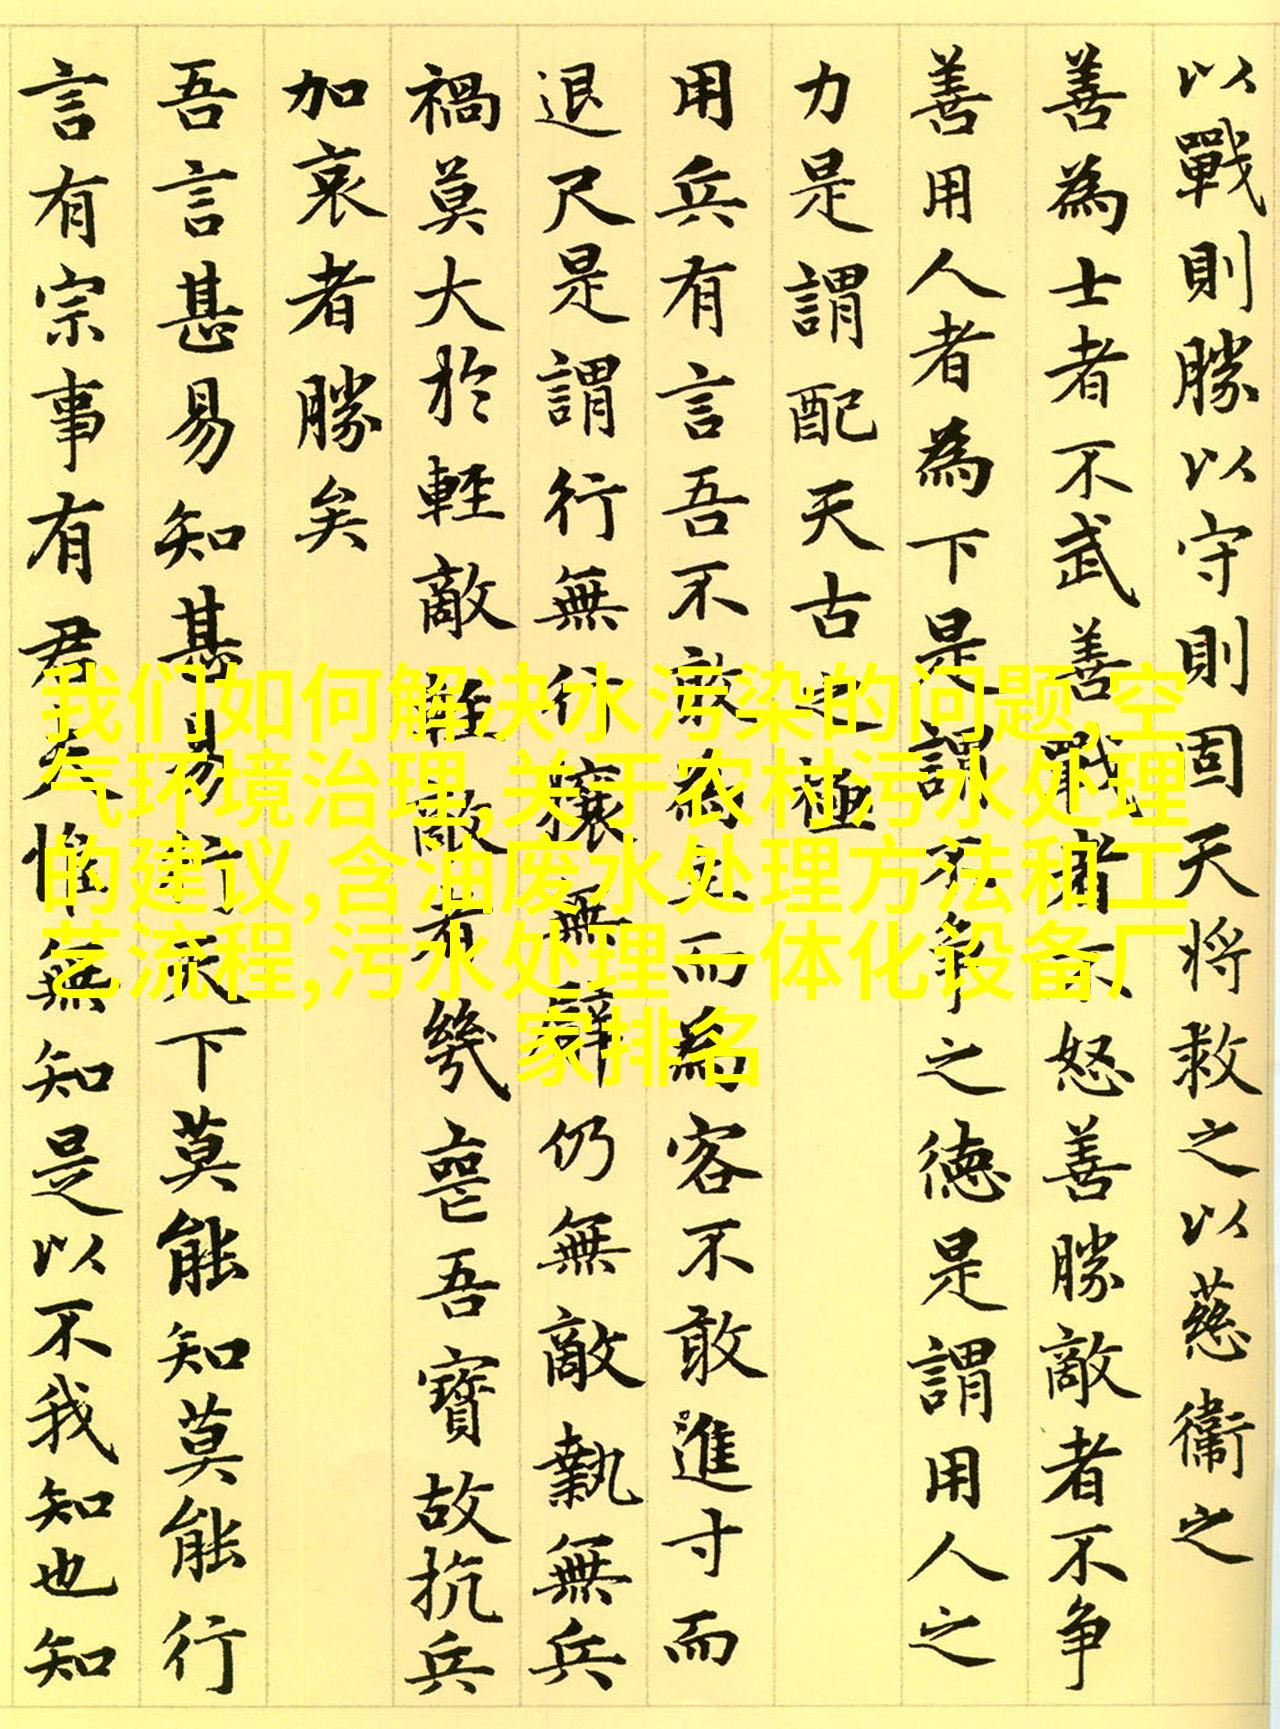 以戰則勝以守則固天將救之以慈衞之
善為士者不武善戰者不怒善勝敵者不争
善用人者為下是謂不争之德是謂用人之
力是謂配天古之極
用兵有言吾不敢為主而為客不敢進寸而
退尺是謂行無行穰無臂仍無敵執無兵
禍莫大於輕敵輕敵幾喪吾寶故抗兵
加哀者勝矣
吾言甚易知甚易行天下莫能知莫能行
言有宗事有君夫惟無知是以不我知也知
我们如何解决水污染的问题,空
气环境治理,关于农村污水处理
的建议,含油废水处理方法和工
艺流程,污水处理一体化设备厂
家排名